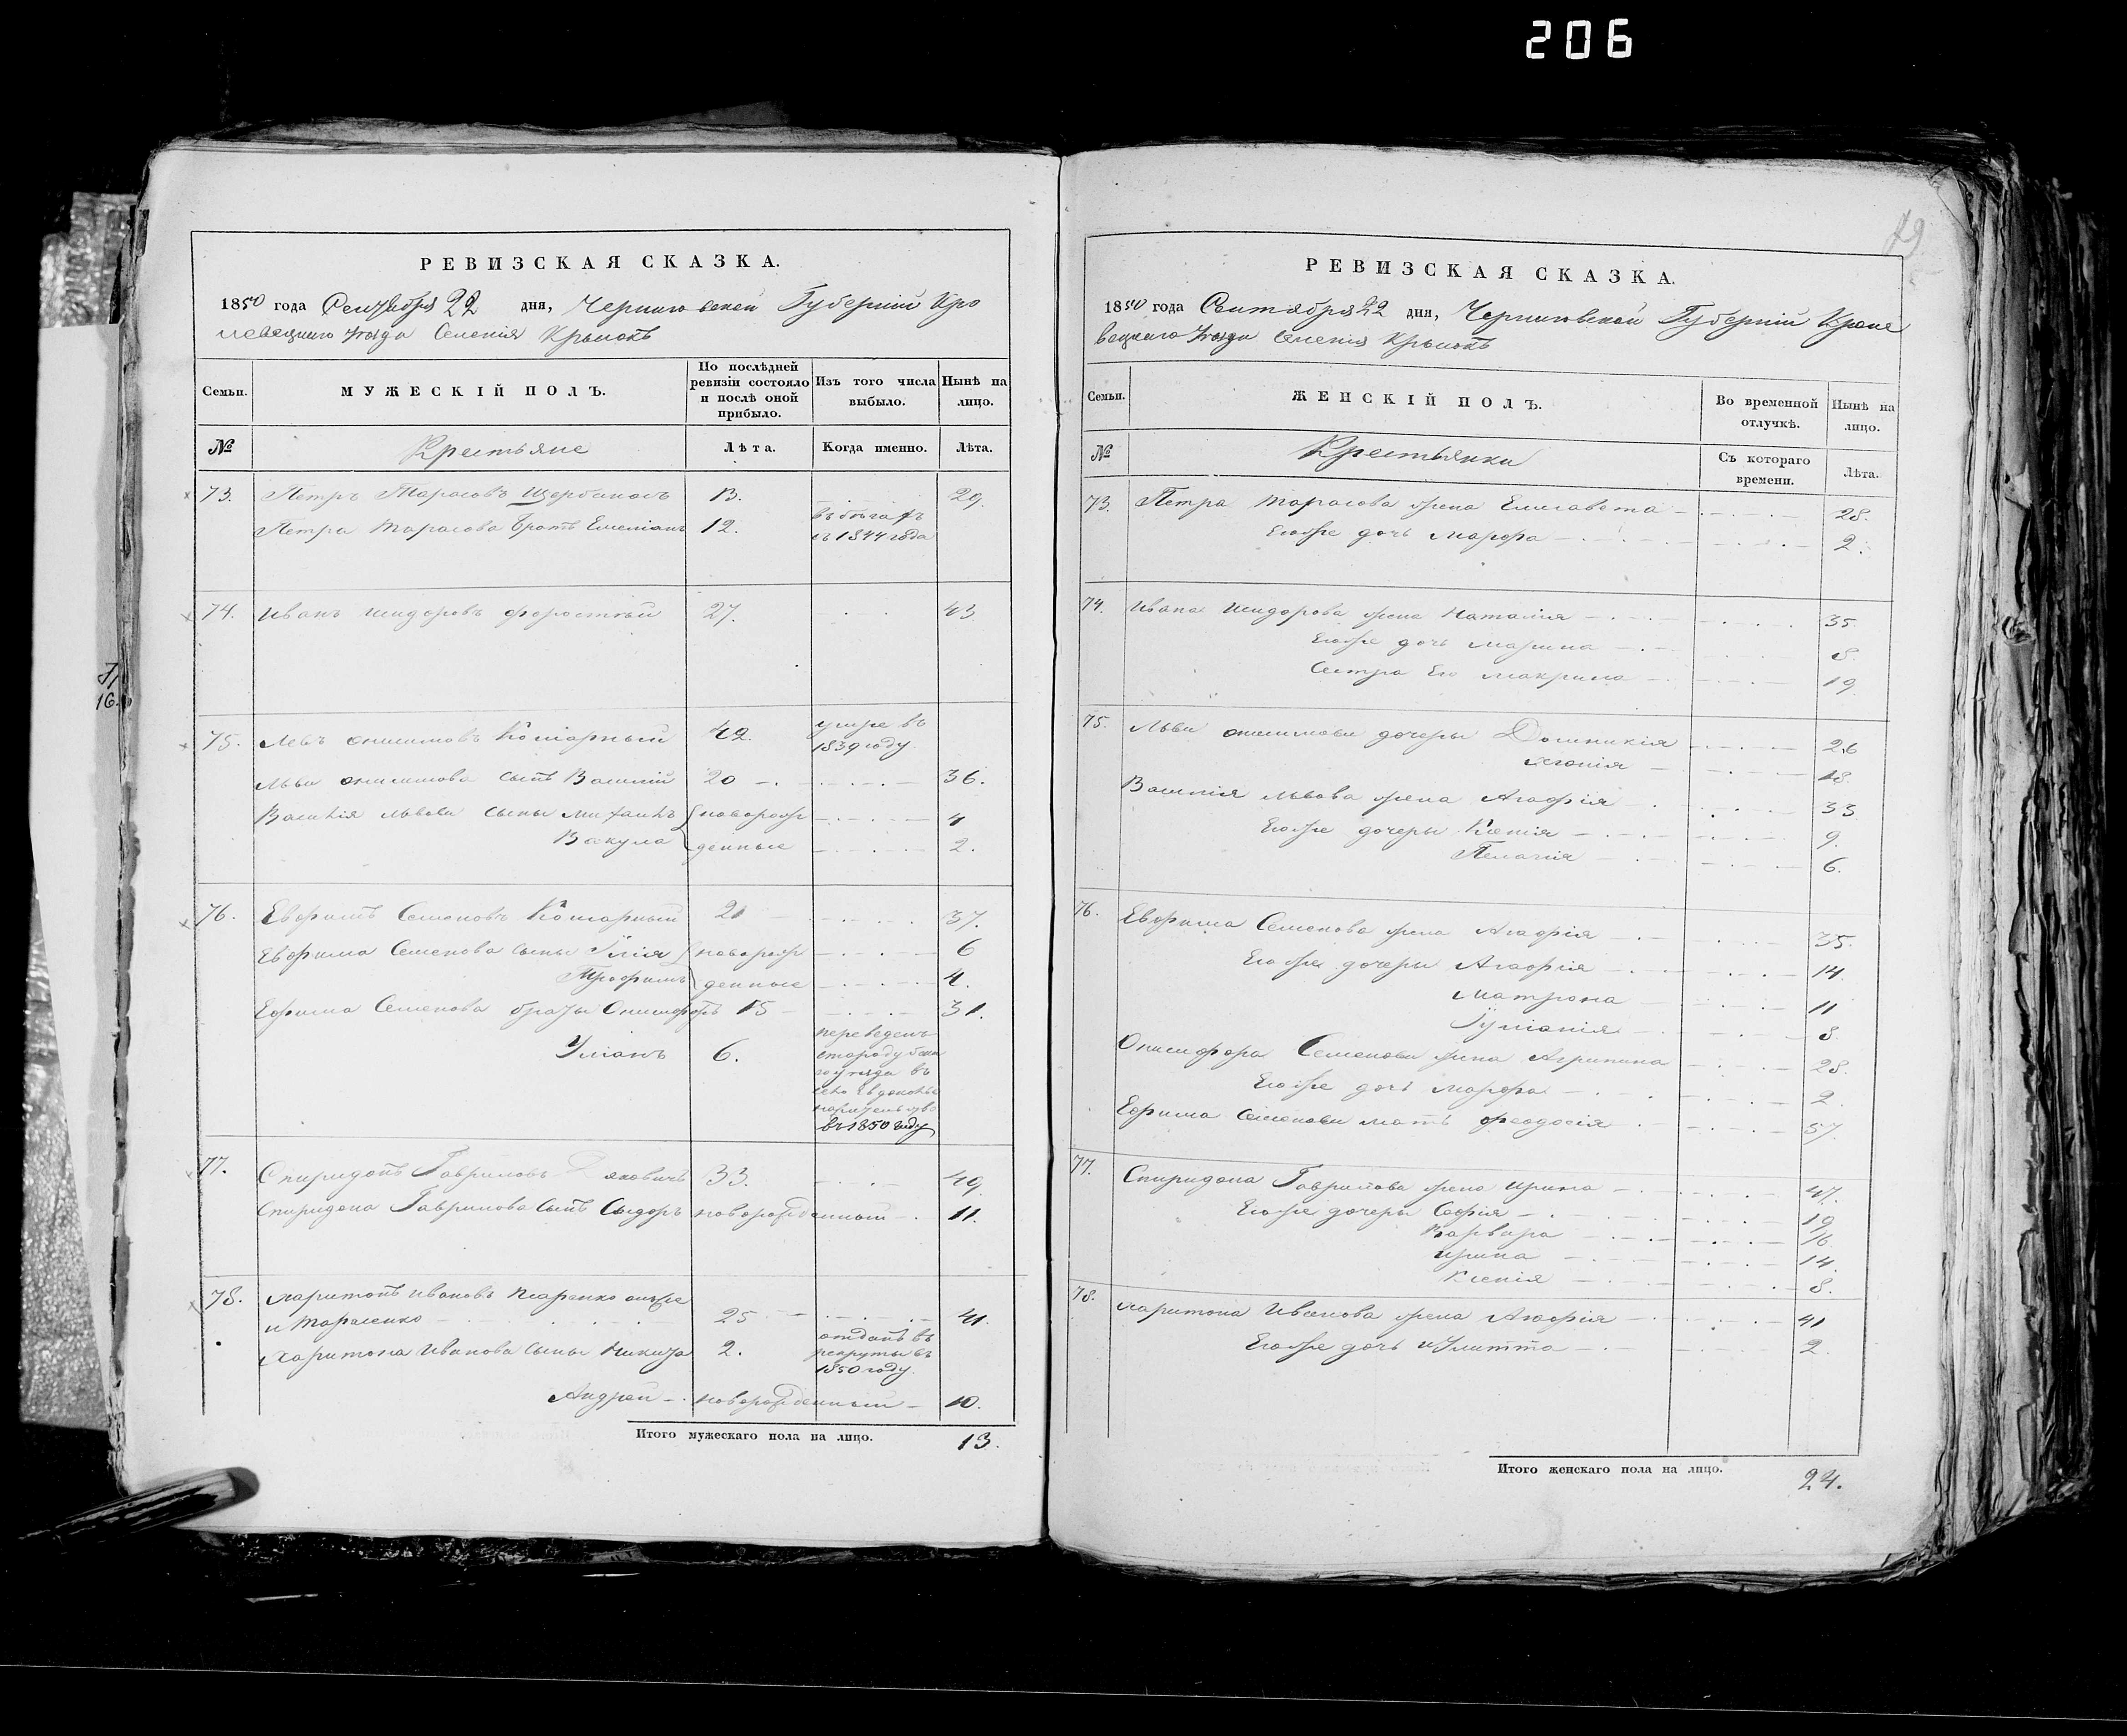 206
Р Е В И З С К А Я С К А З К А.
1850 года Сентября 22 дня, Черниговской Губерніи Кро
левецкаго уѣзда Селенія Крысокъ
Семьи. М У Ж Е С К І Й П О Л Ъ. По послѣдней ревизіи состояло и послѣ оной прибыло. Изъ того числа выбыло. Нынѣ на лицо.
№ Крестьяне Лѣта. Когда именно. Лѣта.
73. Петръ Тарасовъ Щербаковъ 13. 29.
Петра Тарасова братъ Емеліанъ 12. въ бѣгахъ съ 1844 года
74. Иванъ Исидоровъ Форостный 27. 43
75. Левъ Онисимовъ Комарный 42. умре въ 1839 году.
Льва Онисимова сынъ Василій 20 36.
Василія Львова сыны Михаилъ новорож 4
Вакула денные 2.
76. Евфимъ Семеновъ Комарный 21 37.
Евфима Семенова сыны Илія новорож 6
Трофимъ денные 4.
Ефима Семенова браты Онисифоръ 15 31.
Уліанъ 6. переведенъ стародубска
го уѣзда въ
въ 1850 году
77. Спиридонъ Гавриловъ Дяковичъ 33. 49.
Спиридона Гаврилова сынъ Сыдоръ новорожденный 11.
78. Харитонъ Ивановъ онъже
и Тарасенко 25 41.
Харитона Иванова сыны Никита 2. отданъ въ рекруты въ 1850 году.
Андрей новорожденный 10.
Итого мужескаго пола на лицо. 13.
Р Е В И З С К А Я С К А З К А.
1850 года Сентября 22 дня, Черниговской Губерніи Кроле
вецкаго уѣзда Селенія Крысокъ
Семьи. Ж Е Н С К І Й П О Л Ъ. Во временной отлучкѣ. Нынѣ на лицо.
№ Крестьянки Съ котораго времени. Лѣта.
73. Петра Тарасова жена Елисавета 28.
Егоже дочь Марфа 2.
74. Ивана Исидорова жена Наталія 35.
Егоже дочь Марина 8.
Сестра Его Макрина 19.
75. Льва Онисимова дочеры Домникія 26
18.
Василія Львова жена Агафія 33
Егоже дочеры Ксенія 9.
Пелагія 6.
76. Евфима Семенова жена Агафія 35.
Егоже дочеры Агафія 14.
Матрона 11
Іуліанія 8.
Онисифора Семенова жена Агрипина 28.
Егоже дочь Марфа 2
Ефима Семенова мать Феодосія 57.
77. Спиридона Гаврилова жена Ирина 47.
Егоже дочеры Софія 19
Варвара 16.
Ирина 14.
Ксенія 8.
78. Харитона Иванова жена Агафія 41
Егоже дочь Улитта 2.
Итого женскаго пола на лицо. 24.